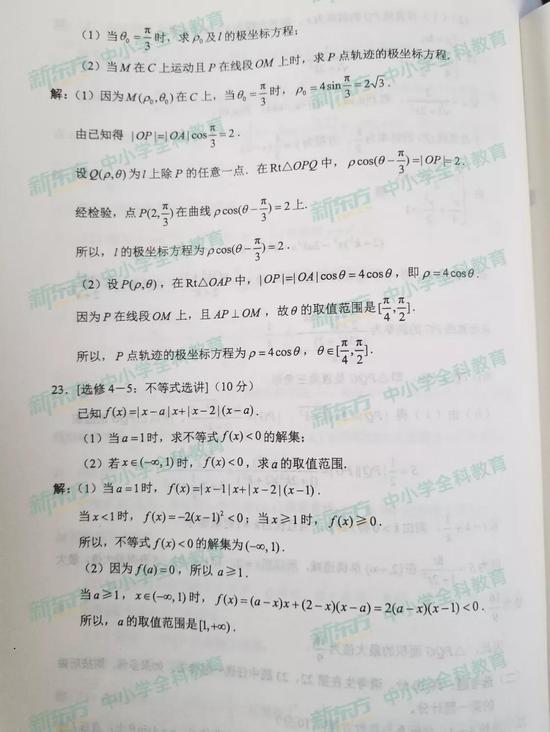 (1) 当θ₀=π/3时，求ρ₀及l的极坐标方程；
(2) 当M在C上运动且P在线段OM上时，求P点轨迹的极坐标方程.
解：(1) 因为M(ρ₀,θ₀)在C上，当θ₀=π/3时，ρ₀=4sinπ/3=2√3.
由已知得 |OP|=|OA|cosπ/3=2.
设Q(ρ,θ)为l上除P的任意一点. 在Rt△OPQ中，ρcos(θ-π/3)=|OP|=2.
经检验，点P(2,π/3)在曲线ρcos(θ-π/3)=2上.
所以，l的极坐标方程为ρcos(θ-π/3)=2.
(2) 设P(ρ,θ)，在Rt△OAP中，|OP|=|OA|cosθ=4cosθ，即ρ=4cosθ.
因为P在线段OM上，且AP⊥OM，故θ的取值范围是[π/4,π/2].
所以，P点轨迹的极坐标方程为ρ=4cosθ，θ∈[π/4,π/2].
23. [选修4-5：不等式选讲] (10分)
已知f(x)=|x-a|x+|x-2|(x-a).
(1) 当a=1时，求不等式f(x)<0的解集；
(2) 若x∈(-∞,1)时，f(x)<0，求a的取值范围.
解：(1) 当a=1时，f(x)=|x-1|x+|x-2|(x-1).
当x<1时，f(x)=-2(x-1)²<0；当x≥1时，f(x)≥0.
所以，不等式f(x)<0的解集为(-∞,1).
(2) 因为f(a)=0，所以a≥1.
当a≥1，x∈(-∞,1)时，f(x)=(a-x)x+(2-x)(x-a)=2(a-x)(x-1)<0.
所以，a的取值范围是[1,+∞).
新东方 中小学全科教育